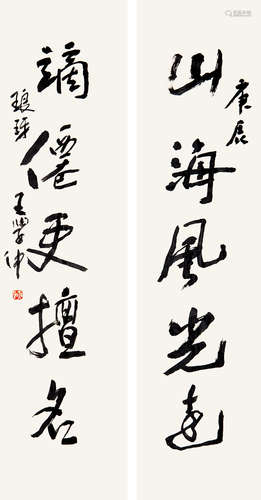 庚辰
山海風光遠
謫僊更擅名
琅玡王學仲